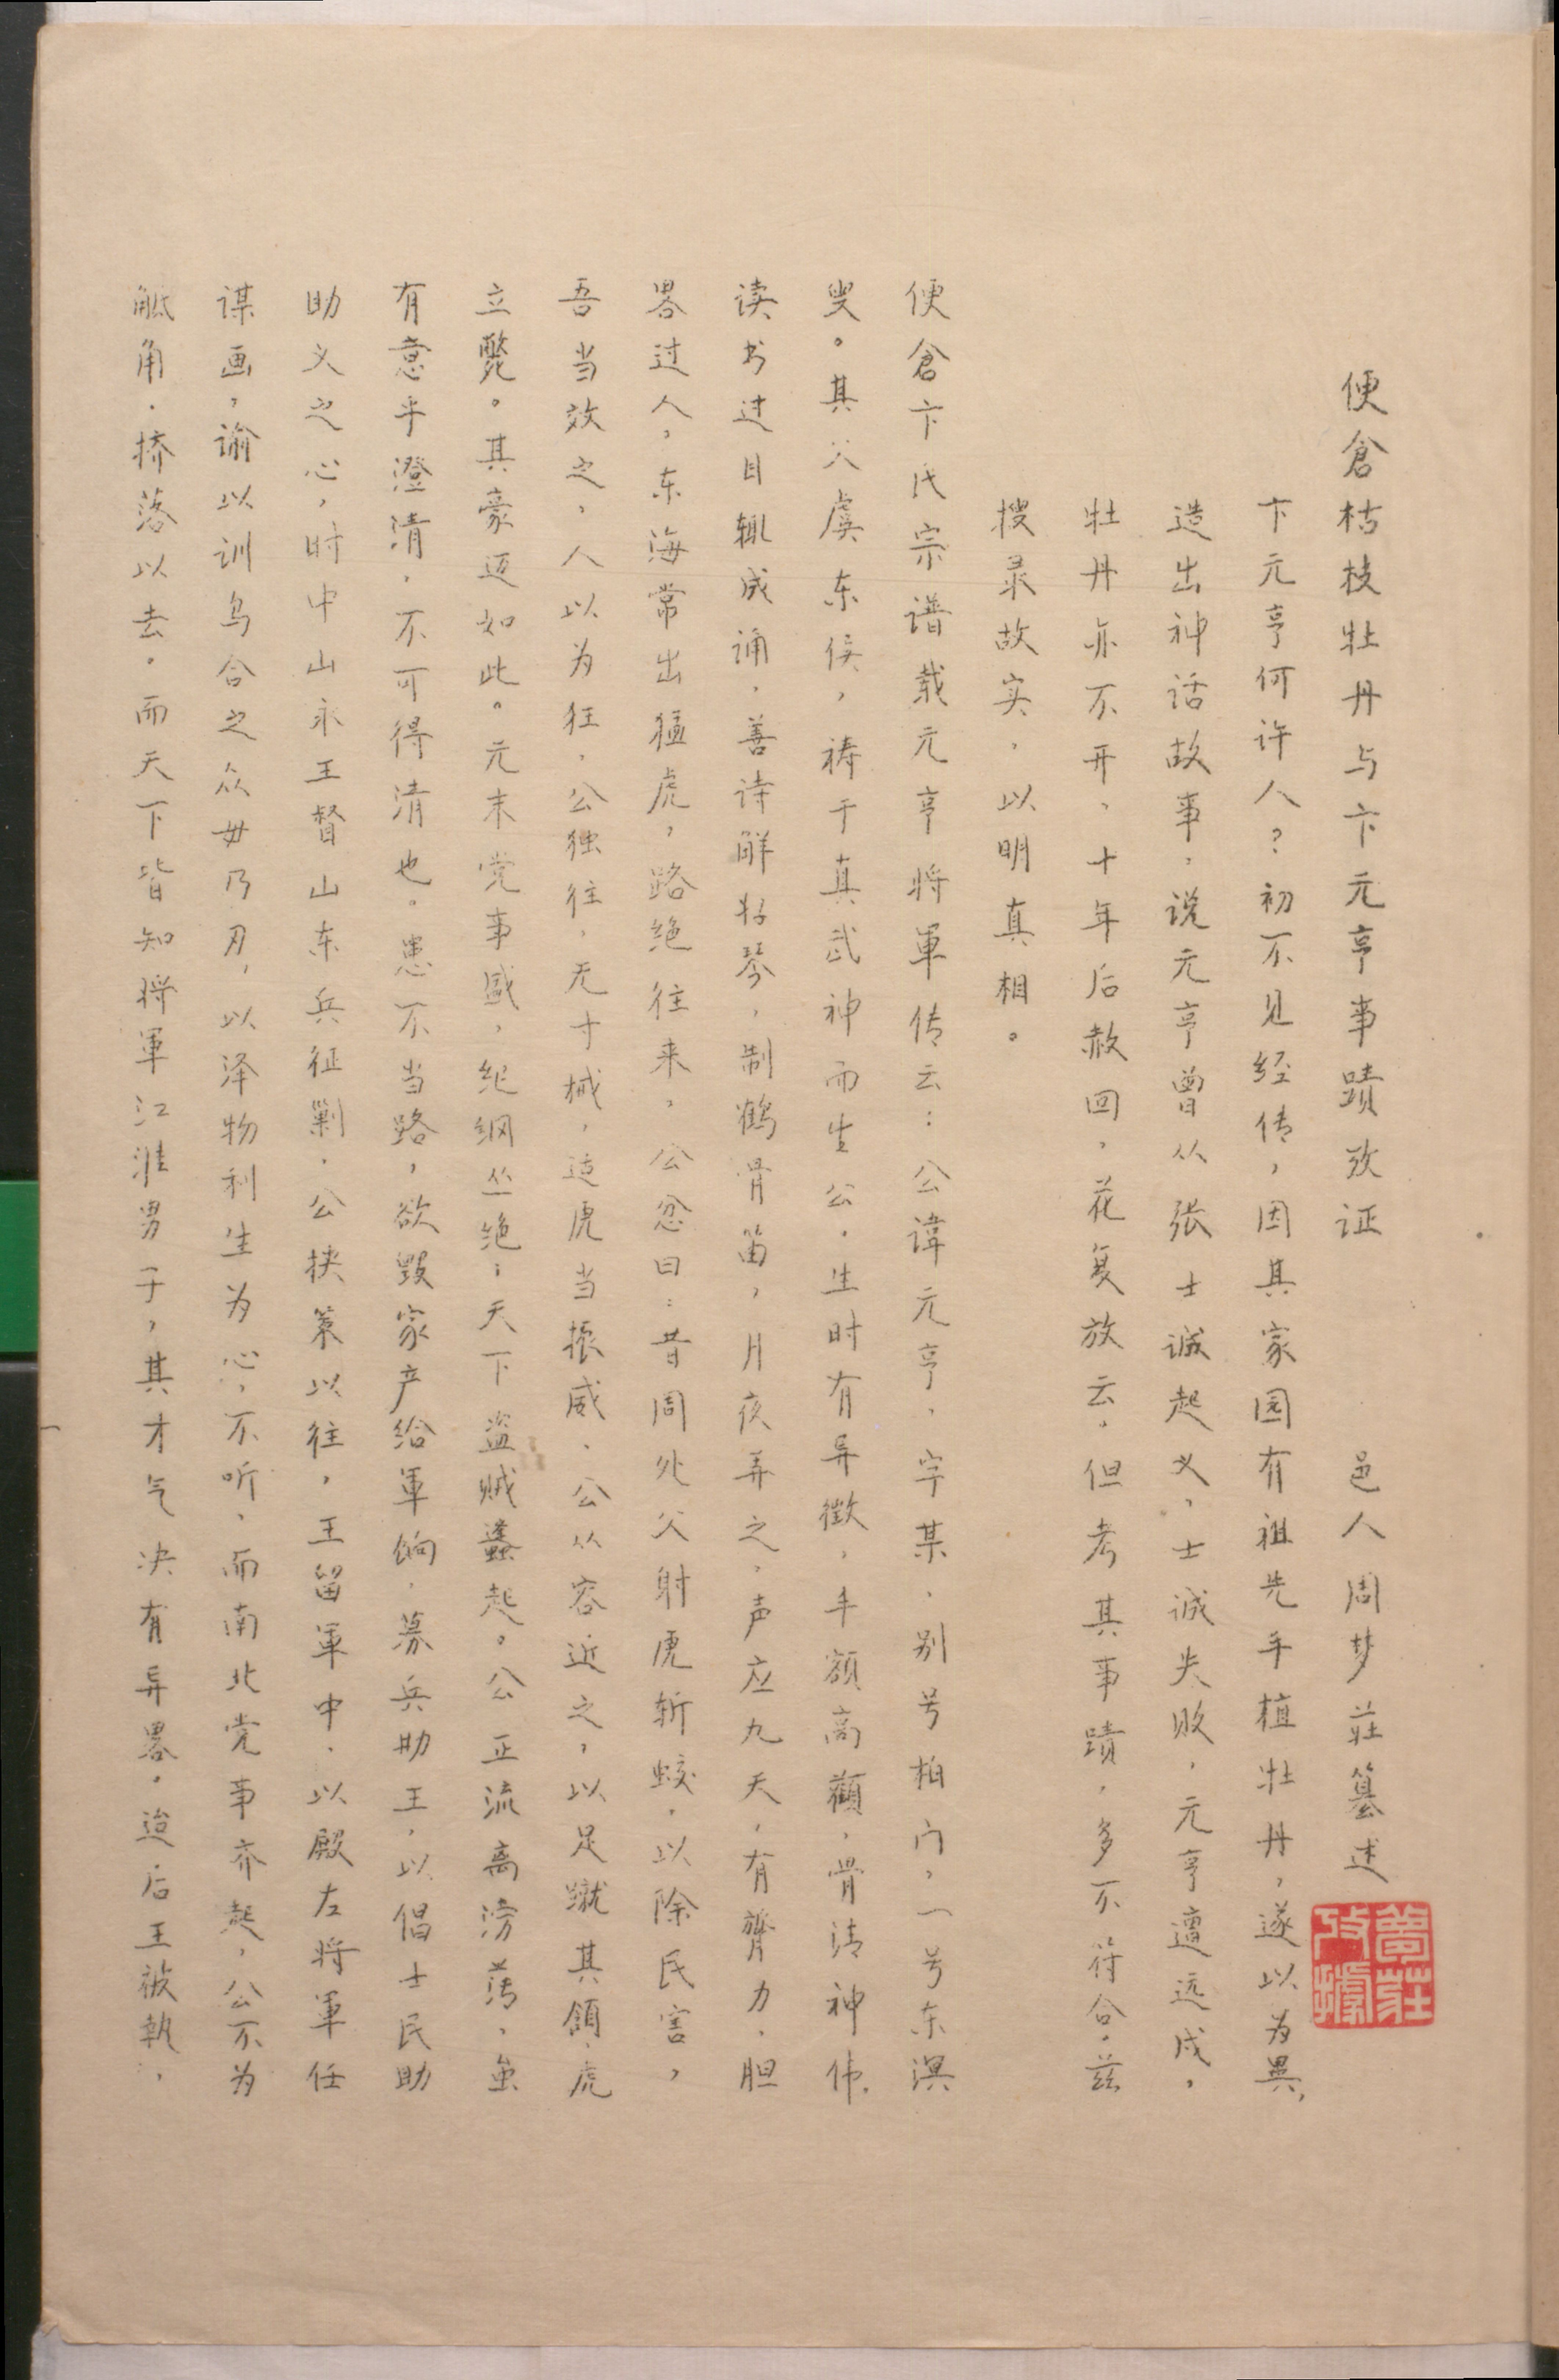 便倉枯枝牡丹与卞元亨事蹟攷证　邑人周梦莊篹述
夢莊攷據
卞元亨何许人？初不见经传，因其家园有祖先手植牡丹，遂以为異，
造出神话故事，说元亨曾从张士诚起义，士诚失败，元亨遭远戍，
牡丹亦不开，十年后赦回，花复放云，但考其事蹟，多不符合，兹
搜录故实，以明真相。
便倉卞氏宗谱载元亨将軍传云：公諱元亨，字某，别号柏门，一号东溟
叟。其父虞东侯，祷于真武神而生公，生时有异徵，丰额高颧，骨清神伟，
读书过目辄成诵，善诗解抚琴，制鹤骨笛，月夜弄之，声应九天，有膂力，胆
畧过人，东海常出猛虎，路绝往来，公忿曰：昔周处父射虎斩蛟，以除民害，
吾当效之，人以为狂，公独往，无寸械，适虎当振威，公从容近之，以足蹴其颔，虎
立毙。其豪迈如此。元末党事盛，纪纲丛绝；天下盗贼蠭起。公正流离滂薄，虽
有意乎澄清，不可得清也。患不当路，欲毁家产给軍饷，募兵助王，以倡士民助
助义之心，时中山永王督山东兵征剿，公挟策以往，王留軍中，以殿左将軍任
谋画，谕以训乌合之众毋乃刃，以泽物利生为心，不听，而南北党事齐起，公不为
觝角，挤落以去。而天下皆知将軍江淮男子，其才气决有异畧，迨后王被執，